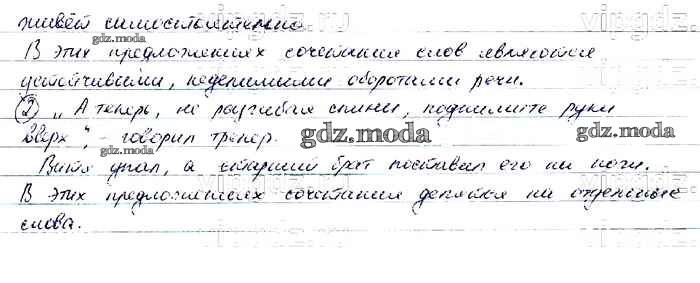 живёт самостоятельно.
В этих предложениях сочетания слов являются
устойчивыми, неделимыми оборотами речи.
2) „А теперь, не разгибая спины, поднимите руки
вверх", - говорил тренер.
Витя упал, а старший брат поставил его на ноги.
В этих предложениях сочетания делятся на отдельные
слова.
gdz.moda
gdz.moda
gdz.moda
gdz.moda
gdz.moda
vipgdz.ru